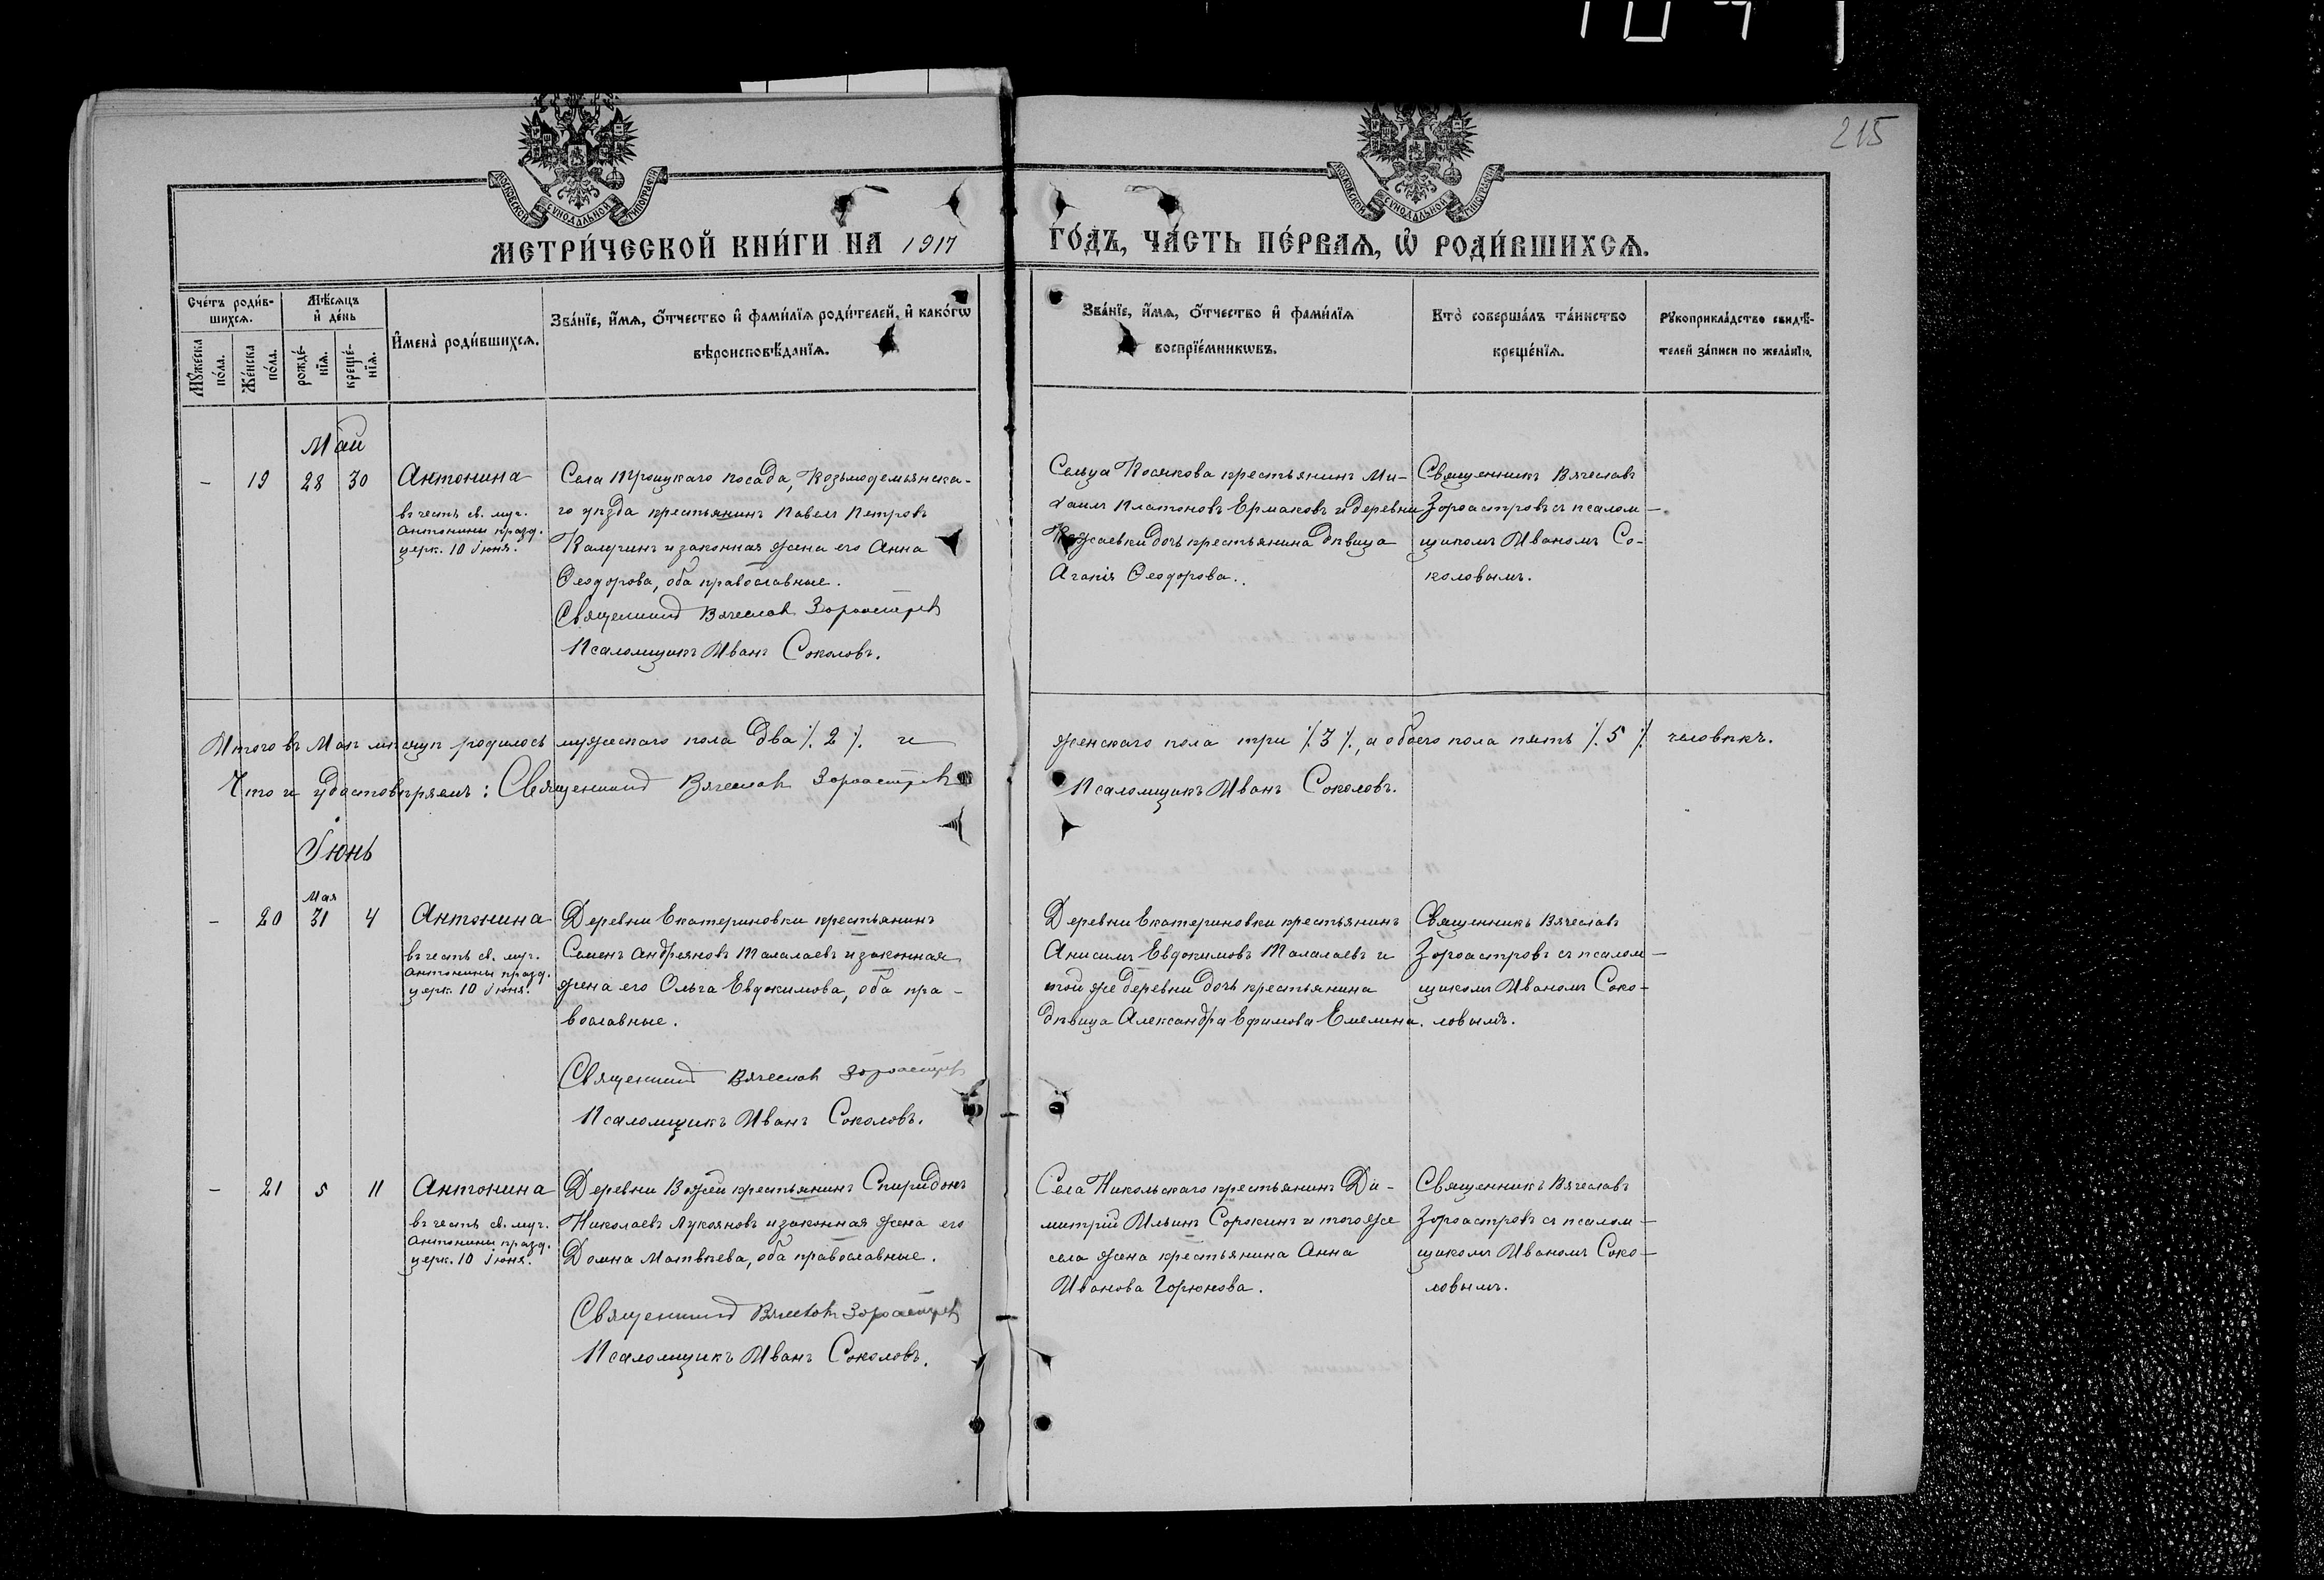 215
МОСКОВСКОЙ СѴНОДАЛЬНОЙ ТИПОГРАФІИ
МОСКОВСКОЙ СѴНОДАЛЬНОЙ ТИПОГРАФІИ
МЕТРИ́ЧЕСКОЙ КНИ́ГИ НА 1917 ГО́ДЪ, ЧА́СТЬ ПЕ́РВАѦ, Ѡ҆ РОДИ́ВШИХСѦ.
Сче́тъ роди́в-
шихсѧ.
Мѹ́жеска по́ла.
Же́нска по́ла.
Мѣ́сѧцъ
и҆ де́нь
рожде́-
нїѧ.
креще́-
нїѧ.
И҆мена̀ роди́вшихсѧ.
Зва́нїе, и҆́мѧ, ѻ҆́тчество и҆ фами́лїѧ роди́телей, и҆ како́гѡ
вѣроисповѣ́данїѧ.
Зва́нїе, и҆́мѧ, ѻ҆́тчество и҆ фами́лїѧ
воспрїе́мникѡвъ.
Кто̀ соверша́лъ та́инство
креще́нїѧ.
Рꙋкоприкла́дство свидѣ́-
телей за́писи по жела́нїю.
Май
- 19 28 30
Антонина
въ честь св. муч.
Антонины празд.
церк. 10 Іюня.
Села Троицкаго посада, Козьмодемьянска-
го уѣзда крестьянинъ Павелъ Петровъ
Калугинъ и законная жена его Анна
Ѳеодорова, оба православные.
Священникъ Вячеславъ Зороастровъ
Псаломщикъ Иванъ Соколовъ.
Сельца Посякова крестьянинъ Ми-
хаилъ Платоновъ Ермаковъ и деревни
дочь крестьянина дѣвица
Агапія Ѳеодорова.
Священникъ Вячеславъ
Зороастровъ съ псалом-
щикомъ Иваномъ Со-
коловымъ.
Итого въ Маѣ мѣсяцѣ родилось мужескаго пола два ٪ 2 ٪ и женскаго пола три ٪ 3 ٪, а обоего пола пять ٪ 5 ٪ человѣкъ.
Что и удостовѣряемъ: Священникъ Вячеславъ Зороастровъ Псаломщикъ Иванъ Соколовъ.
Іюнь
Мая
- 20 31 4
Антонина
въ честь св. муч.
Антонины празд.
церк. 10 Іюня.
Деревни Екатериновки крестьянинъ
Семенъ Андреяновъ Малалаевъ и законная
жена его Ольга Евдокимова, оба пра-
вославные.
Священникъ Вячеславъ Зороастровъ
Псаломщикъ Иванъ Соколовъ.
Деревни Екатериновки крестьянинъ
Анисимъ Евдокимовъ Малалаевъ и
той же деревни дочь крестьянина
дѣвица Александра Ефимова Емелина.
Священникъ Вячеславъ
Зороастровъ съ псалом-
щикомъ Иваномъ Соко-
ловымъ.
- 21 5 11
Антонина
въ честь св. муч.
Антонины празд.
церк. 10 Іюня.
Деревни Вожеи крестьянинъ Спиридонъ
Николаевъ Лукояновъ и законная жена его
Домна Матвѣева, оба православные.
Священникъ Вячеславъ Зороастровъ
Псаломщикъ Иванъ Соколовъ.
Села Никольскаго крестьянинъ Ди-
митрій Ильинъ Сорокинъ и того же
села жена крестьянина Анна
Иванова Горюнова.
Священникъ Вячеславъ
Зороастровъ съ псалом-
щикомъ Иваномъ Соко-
ловымъ.